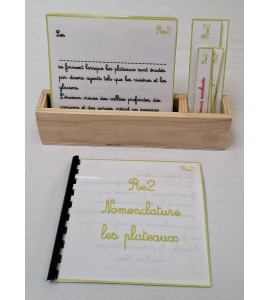 Les
Re2
se forment lorsque les plateaux sont érodés
par divers agents tels que les rivières et les
glaciers.
L'érosion creuse des vallées profondes, des
canyons et des gorges, créant un paysage
Re2
Re2
Re2
Nomenclature
les plateaux